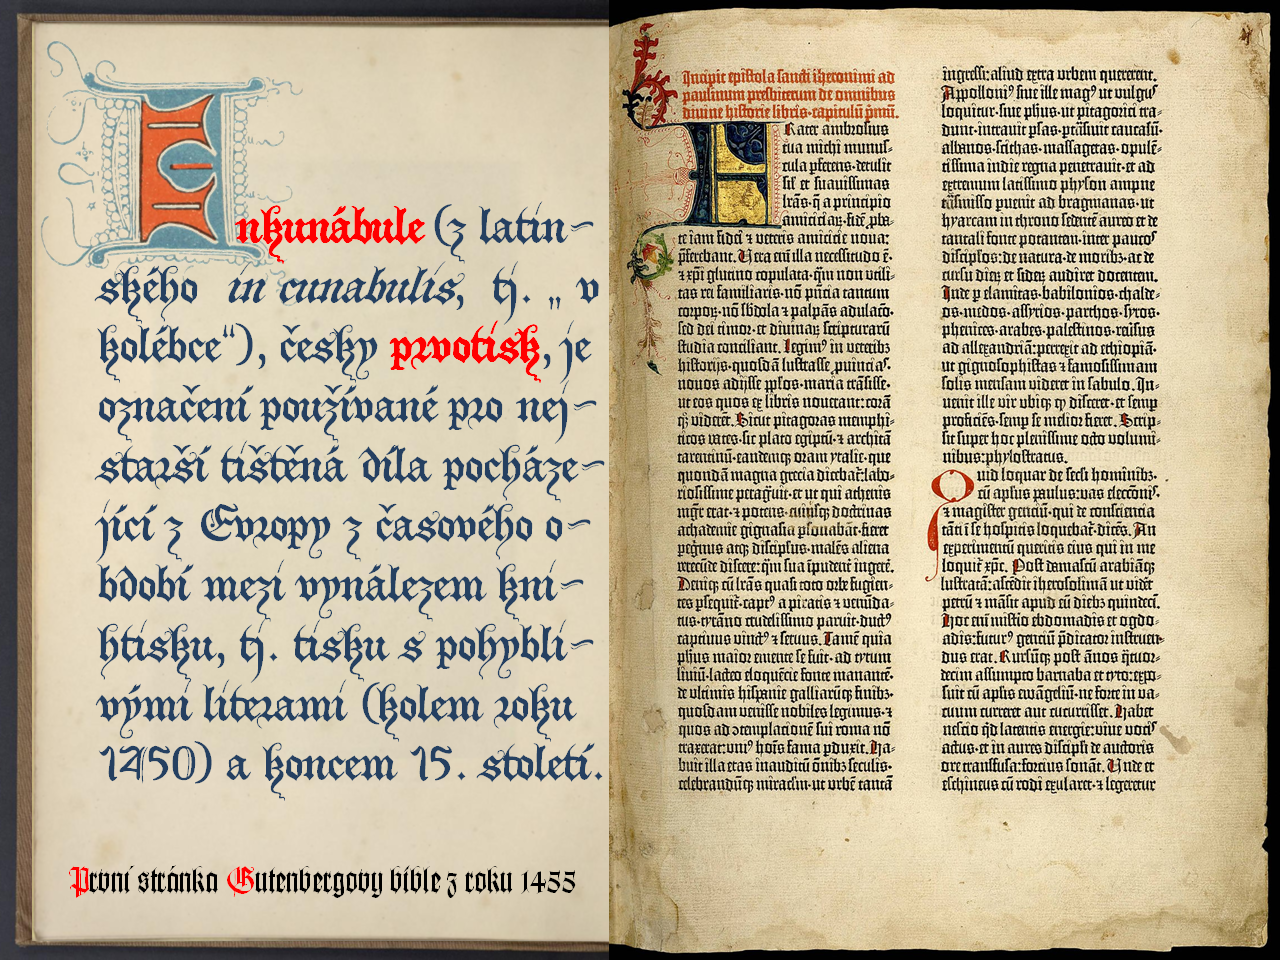 Inkunábule (z latin-
ského in cunabulis, tj. „ v
kolébce“), česky prvotisk, je
označení používané pro nej-
starší tištěná díla pocháze-
jící z Evropy z časového o-
bdobí mezi vynálezem kni-
htisku, tj. tisku s pohybli-
vými literami (kolem roku
1450) a koncem 15. století.
První stránka Gutenbergovy bible z roku 1455
Incipit epistola sancti iheronimi ad
paulinum presbiterum de omnibus
divine historie libris·capitulū pmū.
Frater ambrosius
tua michi munus-
cula pferens·detulit
sił et suavissimas
lrās·q̄ a principio
amicicia⁊·fidē pba-
te iam fidei ⁊ veteris amicicie nova:
pferebant. Vera enī illa necessitudo ē·
⁊ xpī glutino copulata·q̄m non utili-
tas rei familiaris·nō pñcia tantum
corporū·nō sbdola ⁊ palpās adulacō·
sed dei timor·et divinaꝝ scripturarū
studia conciliant. Legimꝰ in veteribꝫ
historijs·quosdā lustrasse pvincias·
novos adijsse pplos·maria trāsisse·
ut eos quos ex libris noverant: corā
qꝫ viderēt. Sicut pitagoras memphi-
ticos vates·sic plato egiptū·⁊ architā
tarentinū·eandemqꝫ oram ytalie·que
quondā magna grecia dicebat̄: labo-
riosissime peragravit·et ut qui athenis
mgr̄ erat·⁊ potens·cuiusqꝫ doctrinas
achademie gignasia psonabāt·fieret
pegrinus atqꝫ discipulus·malēs aliena
verecūde discere: q̄m sua īpudent̄ ingere̅.
Deniqꝫ cū lrās quasi toto orbe fugien-
tes psequit̄·captꝰ a piratis ⁊ venūda-
tus·tyrāno crudelissimo paruit·ductꝰ
captivus vinctꝰ ⁊ servus. Tamē quia
phūs maior emente se fuit·ad tytum
liviū·lacteo eloquēcie fonte manantē·
de ultimis hispanie galliarūqꝫ finibꝫ·
quosdam venisse nobiles legimus·⁊
quos ad ɔtemplacionē sui roma nō
traxerat: unꝰ hoīs fama pduxit. Ha-
buit illa etas inauditū oībꝫ seculis·
celebrandūqꝫ miraclm·ut urbē tantā
ingressi: aliud extra urbem quererent.
Appolloniꝰ sive ille magꝰ ut vulgus
loquitur·sive phūs·ut pitagorici tra-
dunt·intravit psas·ptrāsivit caucasū·
albanos·scithas·massagetas·opulē-
tissima indie regna penetravit·et ad
extremum latissimo physon ampne
trāsmisso puenit ad bragmanas·ut
hyarcam in throno sedentē aureo et de
tantali fonte potantem·inter paucos
discipulos: de natura·de moribꝫ·ac de
cursu dieꝝ et sideꝝ audiret docentem.
Inde p elamitas·babilonios·chalde-
os·medos·assyrios·parthos·syros·
phenices·arabes·palestinos·reversus
ad allexandriā: perrexit ad ethiopiā·
ut gignosophistas ⁊ famosissimam
solis mensam videret in sabulo. In-
venit ille vir ubiqꝫ qd disceret·et semp
proficiēs·semp se melior fieret. Scrip-
sit super hoc plenissime octo volumi-
nibus: phylostratus.
Quid loquar de seculi hominibꝫ·
cū aplūs paulus: vas electōnis·
⁊ magister genciū·qui de consciencia
tāti ī se hospitis loquebat̄·dicēs. An
experimentū queritis eius qui in me
loquit̄ xp̄c. Post damascū arabiāqꝫ
lustratā: ascēdit iherosolimā ut vidēt
petrū ⁊ māsit apud eū diebꝫ quindecī.
Hoc enī misterio ebdomadis et ogdo-
adis: futurꝰ genciū pdicator instruen-
dus erat. Rursūqꝫ post ānos q̄tuor-
decim assumpto barnaba et tyto: expo-
suit cū aplīs ewāgeliū·ne forte in va-
cuum curreret aut cucurrisset. Habet
nescio qd latentis energie: vive vocis
actus·et in aures discipli de auctoris
ore transfusa: forcius sonat̄. Unde et
eschineus cū rodi exularet·⁊ legeretur